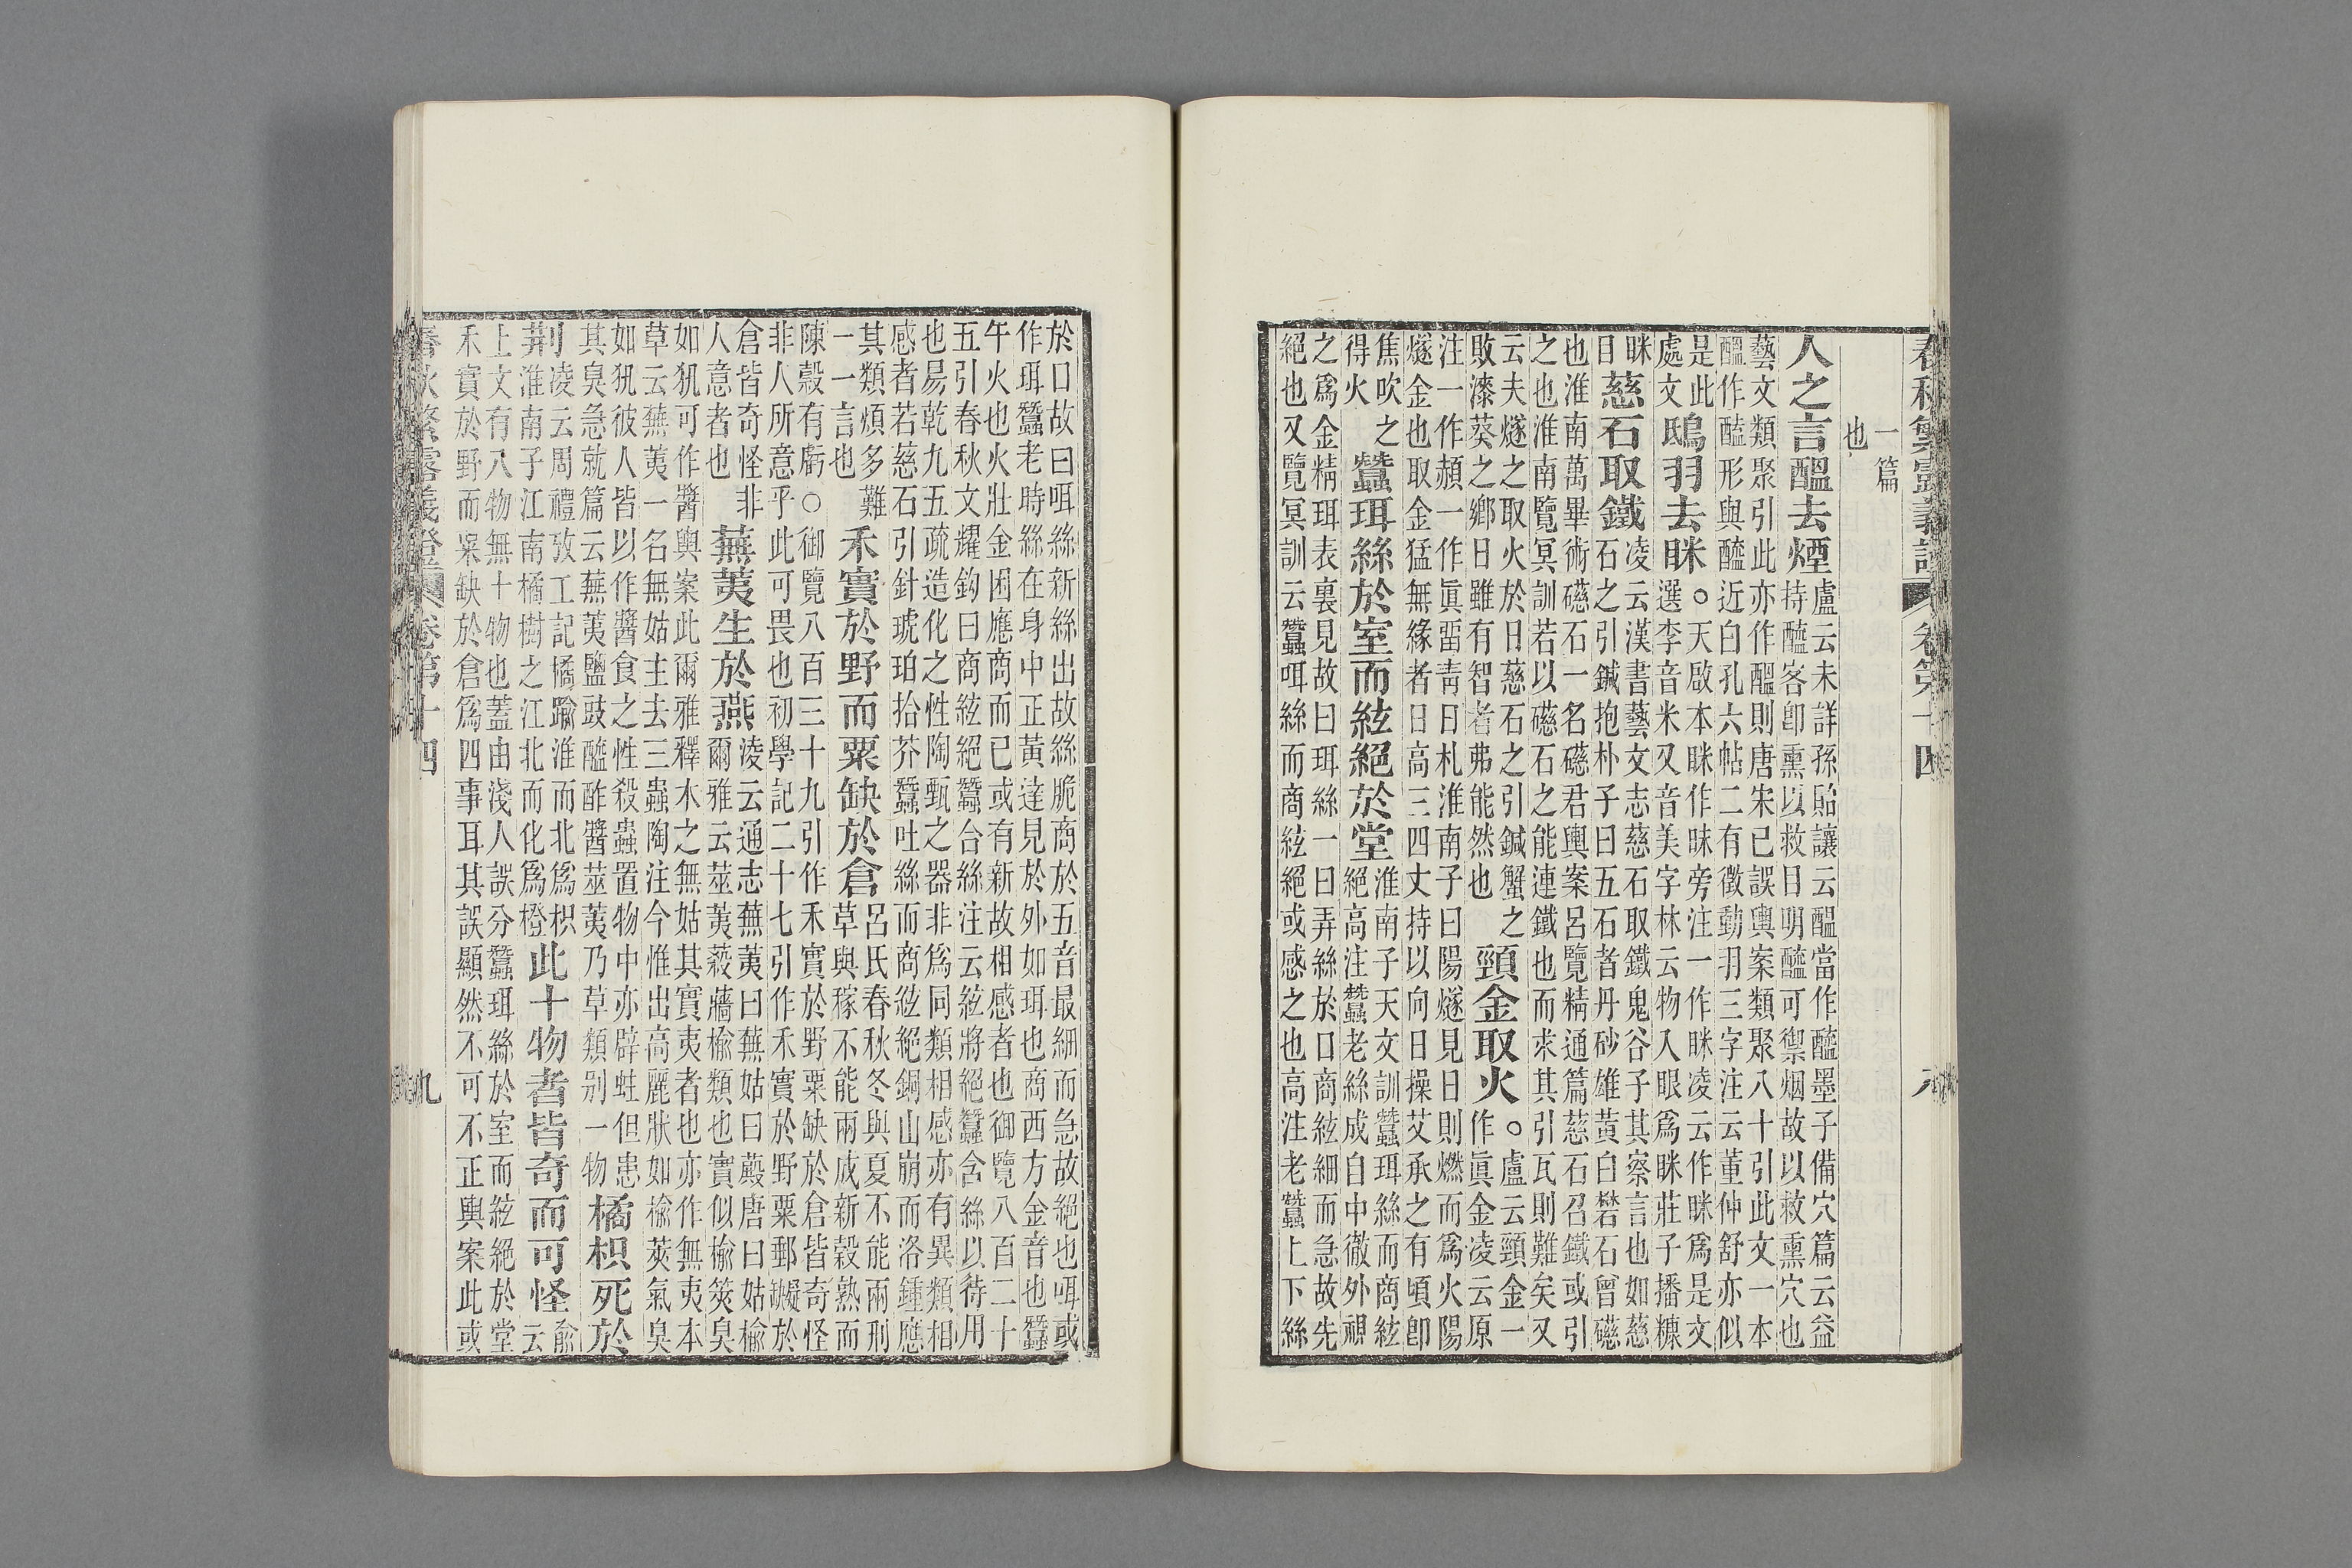 春秋繁露義證 卷第十四 八
一篇
也
人之言醞去煙
盧云未詳孫貽讓云醞當作醯墨子備穴篇云益
持醯客卽熏以救目明醯可禦烟故以救熏穴也
藝文類聚引此亦作醞則唐宋已誤輿案類聚八十引此文一本
醞作醘形與醯近白孔六帖二有徵動羽三字注云董仲舒亦似
是此
處文
鴟羽去眯
○天啟本眯作昧旁注一作眯凌云作眯爲是文
選李音米又音美字林云物入眼爲眯莊子播糠
眯
目
慈石取鐵
凌云漢書藝文志慈石取鐵鬼谷子其察言也如慈
石之引鍼抱朴子曰五石者丹砂雄黃白礬石曾磁
也淮南萬畢術磁石一名磁君輿案呂覽精通篇慈石召鐵或引
之也淮南覽冥訓若以磁石之能連鐵也而求其引瓦則難矣又
云夫燧之取火於日慈石之引鍼蟹之
敗漆葵之鄉日雖有智者弗能然也
頸金取火
○盧云頸金一
作眞金凌云原
注一作頳一作眞畱靑日札淮南子曰陽燧見日則燃而爲火陽
燧金也取金猛無緣者日高三四丈持以向日操艾承之有頃卽
焦吹之
得火
蠶珥絲於室而絃絕於堂
淮南子天文訓蠶珥絲而商絃
絕高注蠶老絲成自中徹外視
之爲金精珥表裏見故曰珥絲一曰弄絲於口商絃細而急故先
絕也又覽冥訓云蠶咡絲而商絃絕或感之也高注老蠶上下絲
於口故曰咡絲新絲出故絲脆商於五音最細而急故絕也咡或
作珥蠶老時絲在身中正黃達見於外如珥也商西方金音也蠶
午火也火壯金困應商而已或有新故相感者也御覽八百二十
五引春秋文耀鉤曰商絃絕蠶合絲注云絃將絕蠶含絲以待用
也易乾九五疏造化之性陶甄之器非爲同類相感亦有異類相
感者若慈石引針琥珀拾芥蠶吐絲而商絃絕銅山崩而洛鍾應
其類煩多難
一一言也
禾實於野而粟缺於倉
呂氏春秋冬與夏不能兩刑
草與稼不能兩成新穀熟而
陳穀有虧○御覽八百三十九引作禾實於野粟缺於倉皆奇怪
非人所意乎此可畏也初學記二十七引作禾實於野粟郵礙於
倉皆奇怪非
人意者也
蕪荑生於燕
凌云通志蕪荑曰蕪姑曰㱿唐曰姑榆
爾雅云莁荑蔱蘠榆類也實似榆筴臭
如犼可作醬輿案此爾雅釋木之無姑其實夷者也亦作無夷本
草云蕪荑一名無姑主去三蟲陶注今惟出高麗狀如榆莢氣臭
如犼彼人皆以作醬食之性殺蟲置物中亦辟蛀但患
其臭急就篇云蕪荑鹽豉醯酢醬莁荑乃草類別一物
橘枳死於
荆
凌云周禮攷工記橘踰淮而北爲枳
淮南子江南橘樹之江北而化爲橙
此十物者皆奇而可怪
俞
云
上文有八物無十物也蓋由淺人誤分蠶珥絲於室而絃絕於堂
禾實於野而粟缺於倉爲四事耳其誤顯然不可不正輿案此或
春秋繁露義證 卷第十四 九